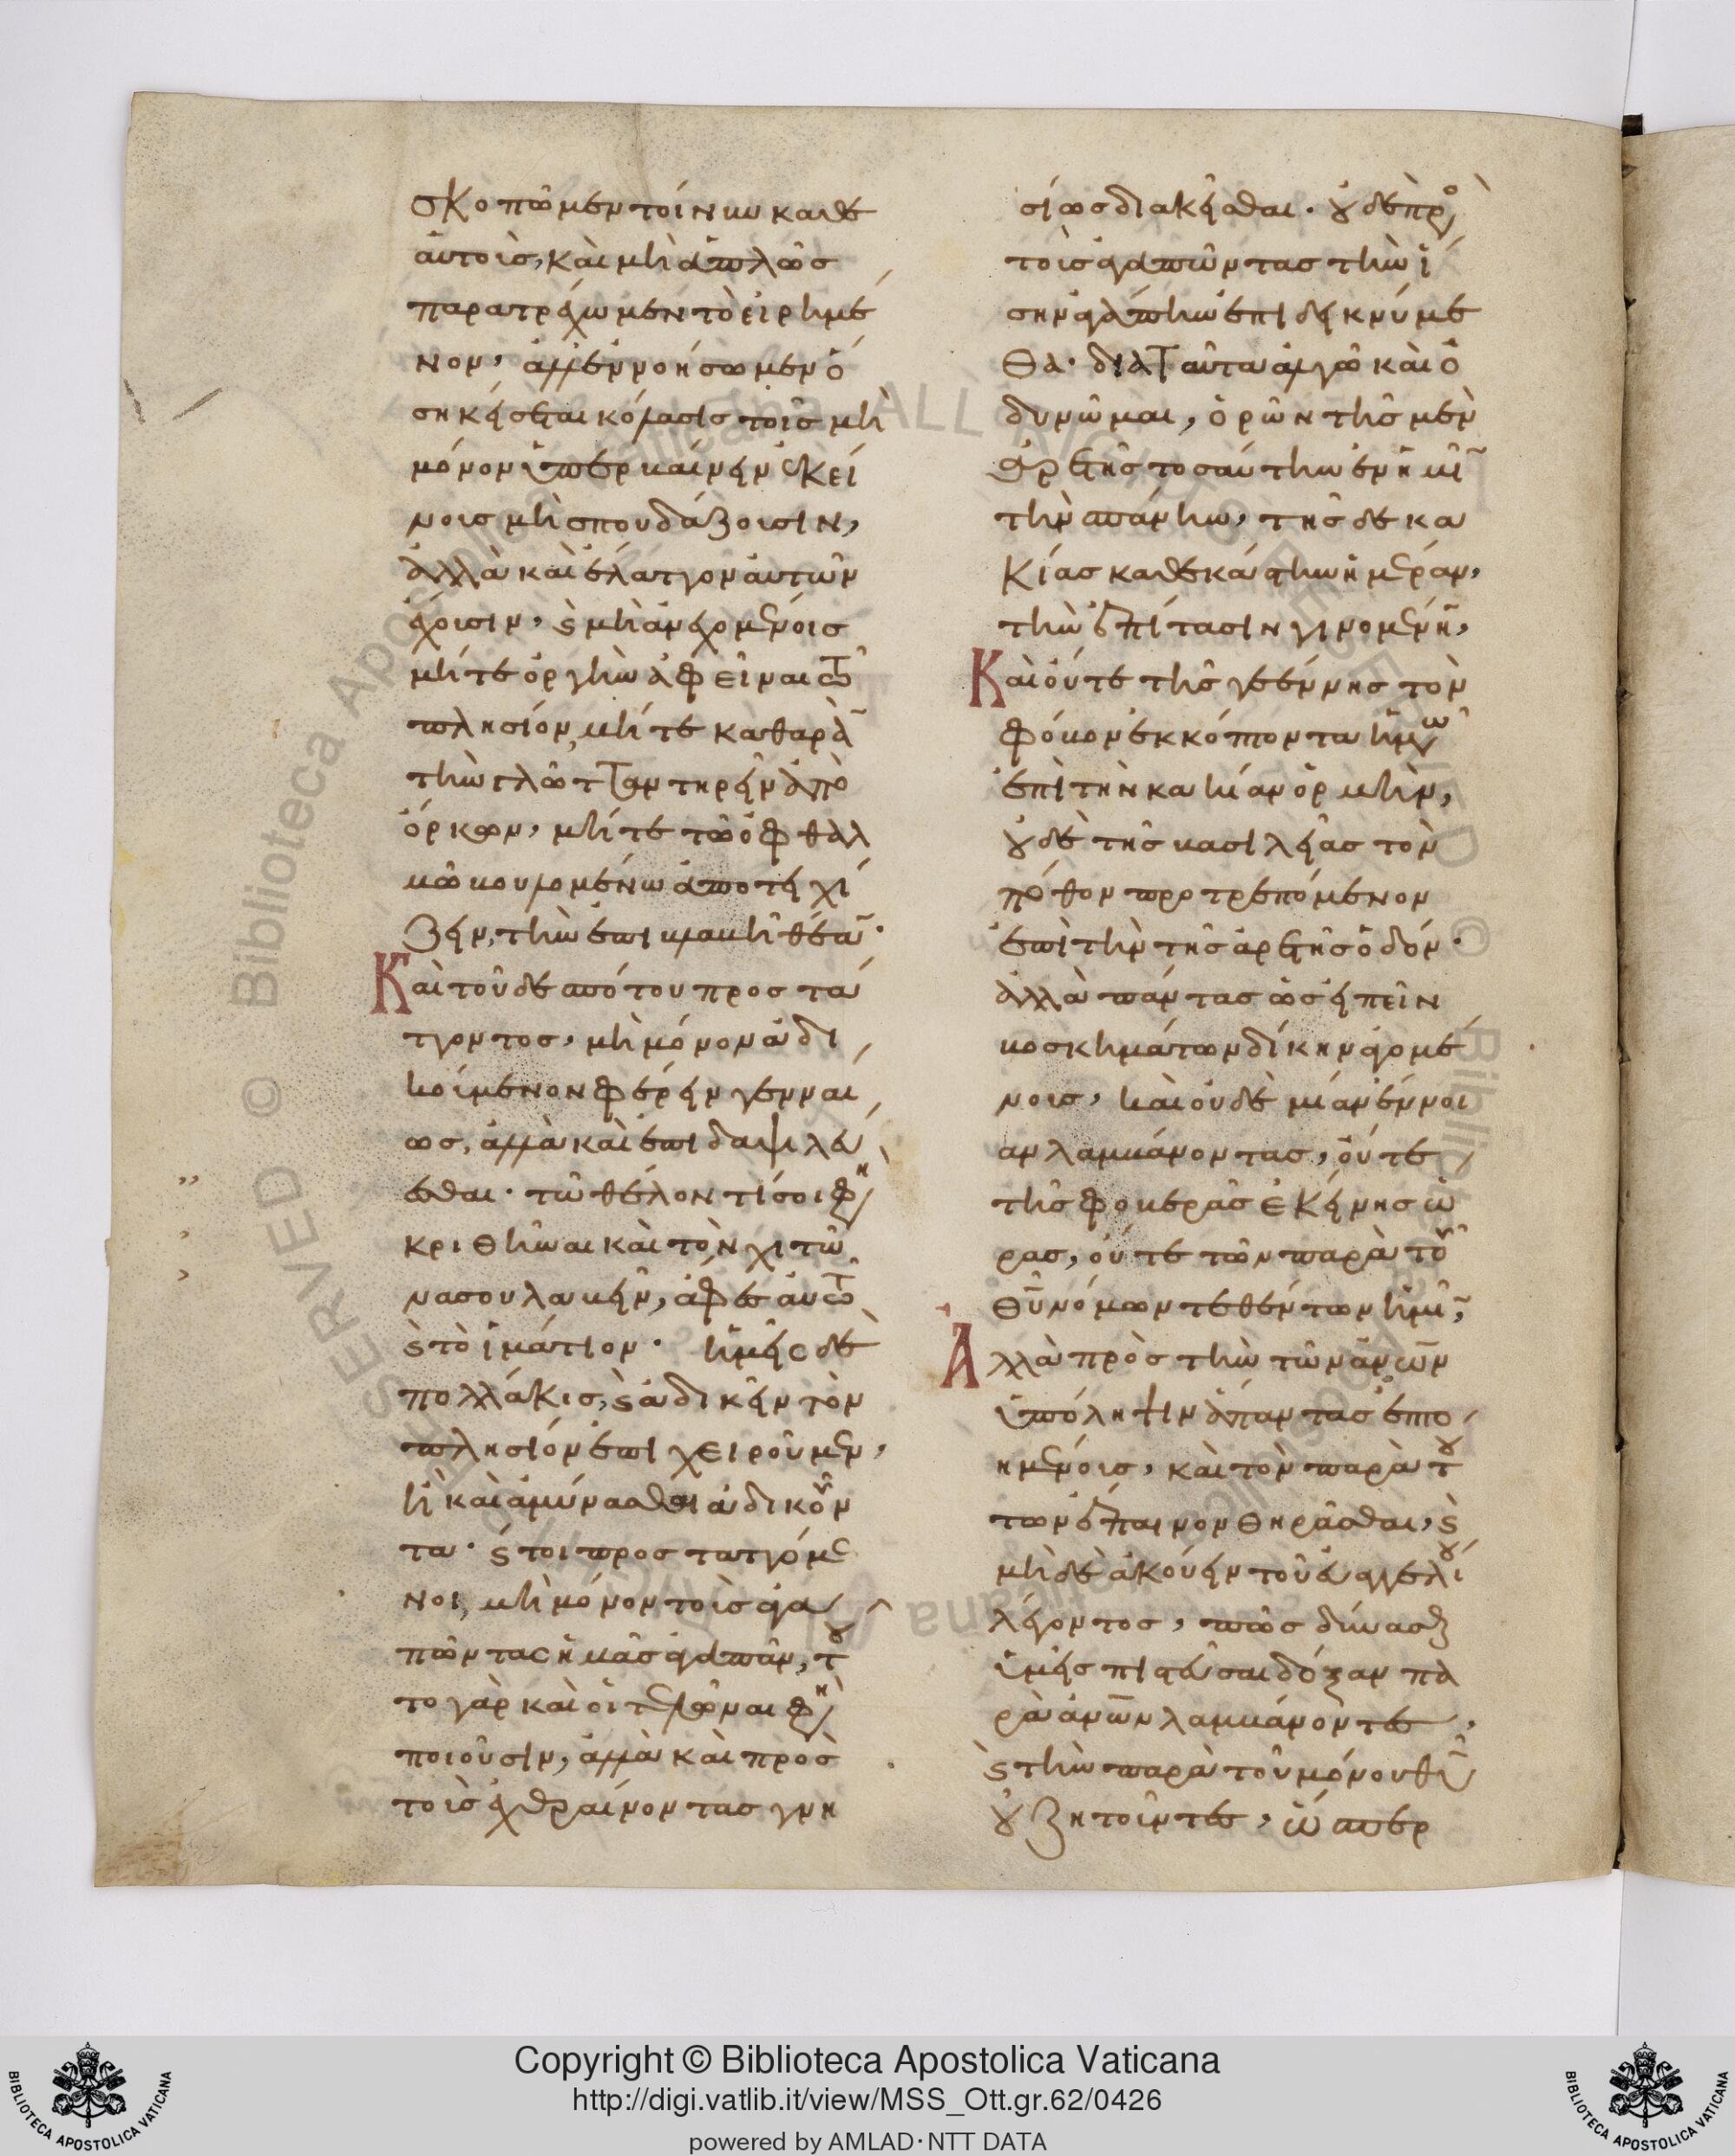 σκοπῶμεν τοίνυν καθ ε
αυτοὺς, καὶ μὴ ἁπλῶς
παρατρέχωμεν τὸ εἰρημέ
νον, ἀλλ ἐννοήσωμεν ὅ
ση κείσεται κόλασις τοῖς μὴ
μόνον ὑπερβαίνειν ἐκεί
νους μὴ σπουδάζουσιν,
ἀλλὰ καὶ ἔλαττον αὐτῶν
ἔχουσιν, ϗ μὴ ἀνεχομένοις
μήτε ὀργὴν ἀφεῖναι τῶ
πλησίον, μήτε καθαρὰν
τὴν γλῶτταν τηρεῖν ἀπὸ
ὅρκων, μήτε τῶ ὀφθαλ
μῶ βουλομένω ἀποτειχί
ζειν, τὴν ἐπιβλαβῆ θέαν·
Καὶ τοῦδε ἀπὸ τοῦ προστά
τοντος, μὴ μόνον ἀδι
κούμενον φέρειν γενναί
ως, ἀλλὰ καὶ ἐπιδαψιλεύ
εσθαι· τῶ θέλοντί σοι φη
κριθῆναι καὶ τὸν χιτῶ
να σου λαβεῖν, ἄφες αὐτῶ
ϗ τὸ ἱμάτιον· ἡμεῖς δὲ
πολλάκις, ϗ ἀδικεῖν τὸν
πλησίον ἐπιχειροῦμεν,
ἢ καὶ ἀμύνασθαι ἀδικοῦν
τα· ϗ τοι προσταττόμε
νοι, μὴ μόνον τοὺς ἀγα
πῶντας ἡμᾶς ἀγαπᾶν, τοῦ
το γὰρ καὶ οἱ τελῶναι φη
ποιοῦσιν, ἀλλὰ καὶ πρὸς
τοὺς ἐχθραίνοντας γνη
σίως διακεῖσθαι· οὐδὲ πρὸς
τοὺς ἀγαπῶντας τὴν ἴ
σην ἀγάπην ἐπιδεικνύμε
θα· διὰ ταῦτα ἀλγῶ καὶ ὀ
δυνῶμαι, ὁρῶν τῆς μὲν
ἀρετῆς τοσαύτην ἐν ἡμῖν
τὴν σπάνην, τῆς δὲ κα
κίας καθ εκάστην ἡμέραν,
τὴν ἐπίτασιν γινομένην,
Καὶ οὔτε τῆς γεέννης τὸν
φόβον ἐκκόπτοντα ἡμῶν
ἐπὶ τὴν κακίαν ὁρμὴν,
οὐδὲ τῆς βασιλείας τὸν
πόθον προτρεπόμενον
ἐπὶ τὴν τῆς ἀρετῆς ὁδόν·
ἀλλὰ πάντας ὡς εἰπεῖν
βοσκημάτων δίκην ἀγομέ
νους, καὶ οὐδὲ μίαν ἔννοι
αν λαμβάνοντας, οὔτε
τῆς φοβερᾶς ἐκείνης ὥ
ρας, οὔτε τῶν παρὰ τοῦ
θῦ νόμων τεθέντων ἡμῖν,
Ἀλλὰ πρὸς τὴν τῶν ἀνων
ὑπόληψιν ἅπαντας ἐπτο
ημένους, καὶ τὸν παρὰ τού
των ἔπαινον θηρᾶσθαι, ϗ
μὴ δὲ ἀκούειν τοῦ εὐαγγελίου
λέγοντος, πῶς δύνασθε
ὑμεῖς πιστεῦσαι δόξαν πα
ρὰ ἀνων λαμβάνοντες,
ϗ τὴν παρὰ τοῦ μόνου θῦ
οὐ ζητοῦντες, ὥσπερ
Biblioteca Apostolica Vaticana
ALL RIGHTS RESERVED ©
Copyright © Biblioteca Apostolica Vaticana
http://digi.vatlib.it/view/MSS_Ott.gr.62/0426
powered by AMLAD·NTT DATA
BIBLIOTECA APOSTOLICA VATICANA
BIBLIOTECA APOSTOLICA VATICANA